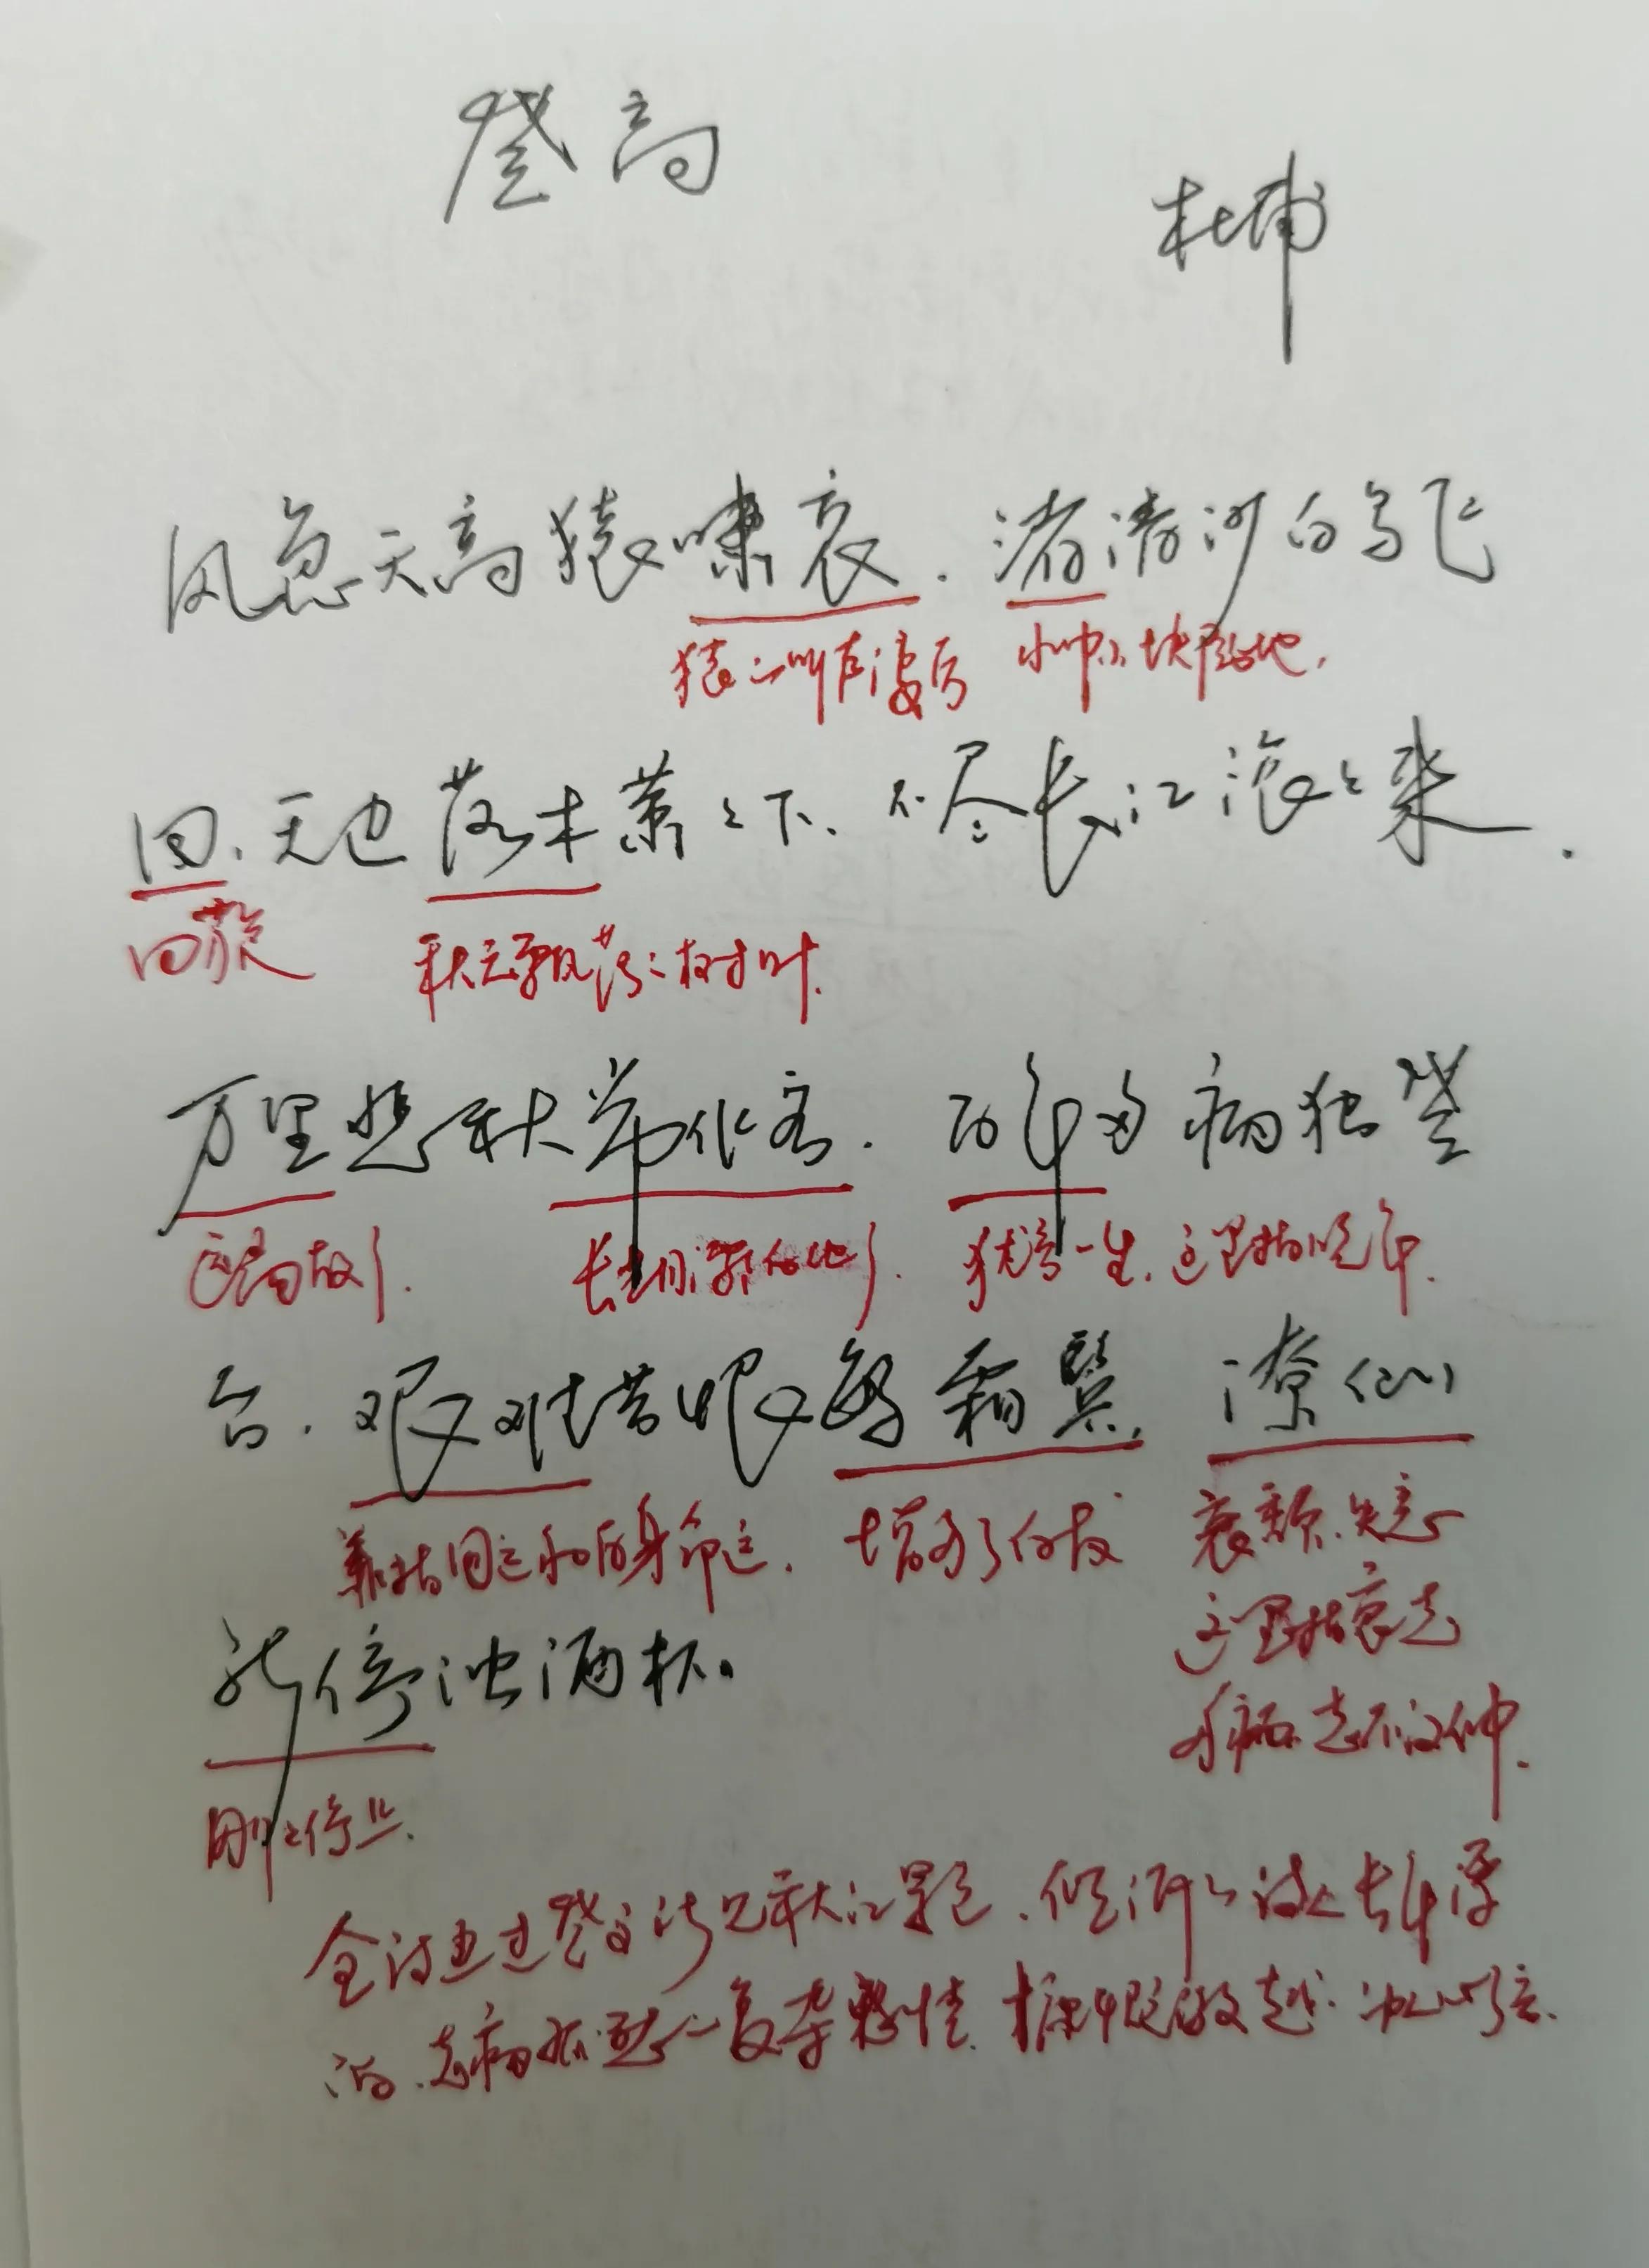 登高
杜甫
风急天高猿啸哀.渚清沙白鸟飞
猿的叫声凄厉 水中小块陆地.
回.无边落木萧々下.不尽长江滚々来.
回旋 秋天飘落的树叶.
万里悲秋常作客.百年多病独登
远离故乡. 长期漂泊他乡. 犹言一生.这里指晚年.
台.艰难苦恨繁霜鬓.潦倒
兼指国运和自身命运. 增多了白发 衰颓.失意
这里指衰老
多病.志不得伸.
新停浊酒杯。
刚刚停止.
全诗通过登高所见秋江景色.倾诉了诗人长年漂
泊.老病孤愁的复杂感情.慷慨激越.动人心弦.